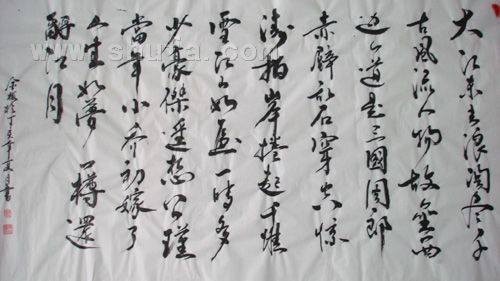 大江东去浪淘尽千
古風流人物故壘西
边人道是三國周郎
赤壁乱石穿空惊
涛拍岸捲起千堆
雪江山如画一時多
少豪傑遥想公瑾
當年小乔初嫁了
人生如夢一樽還
酹江月
丁亥年夏月書